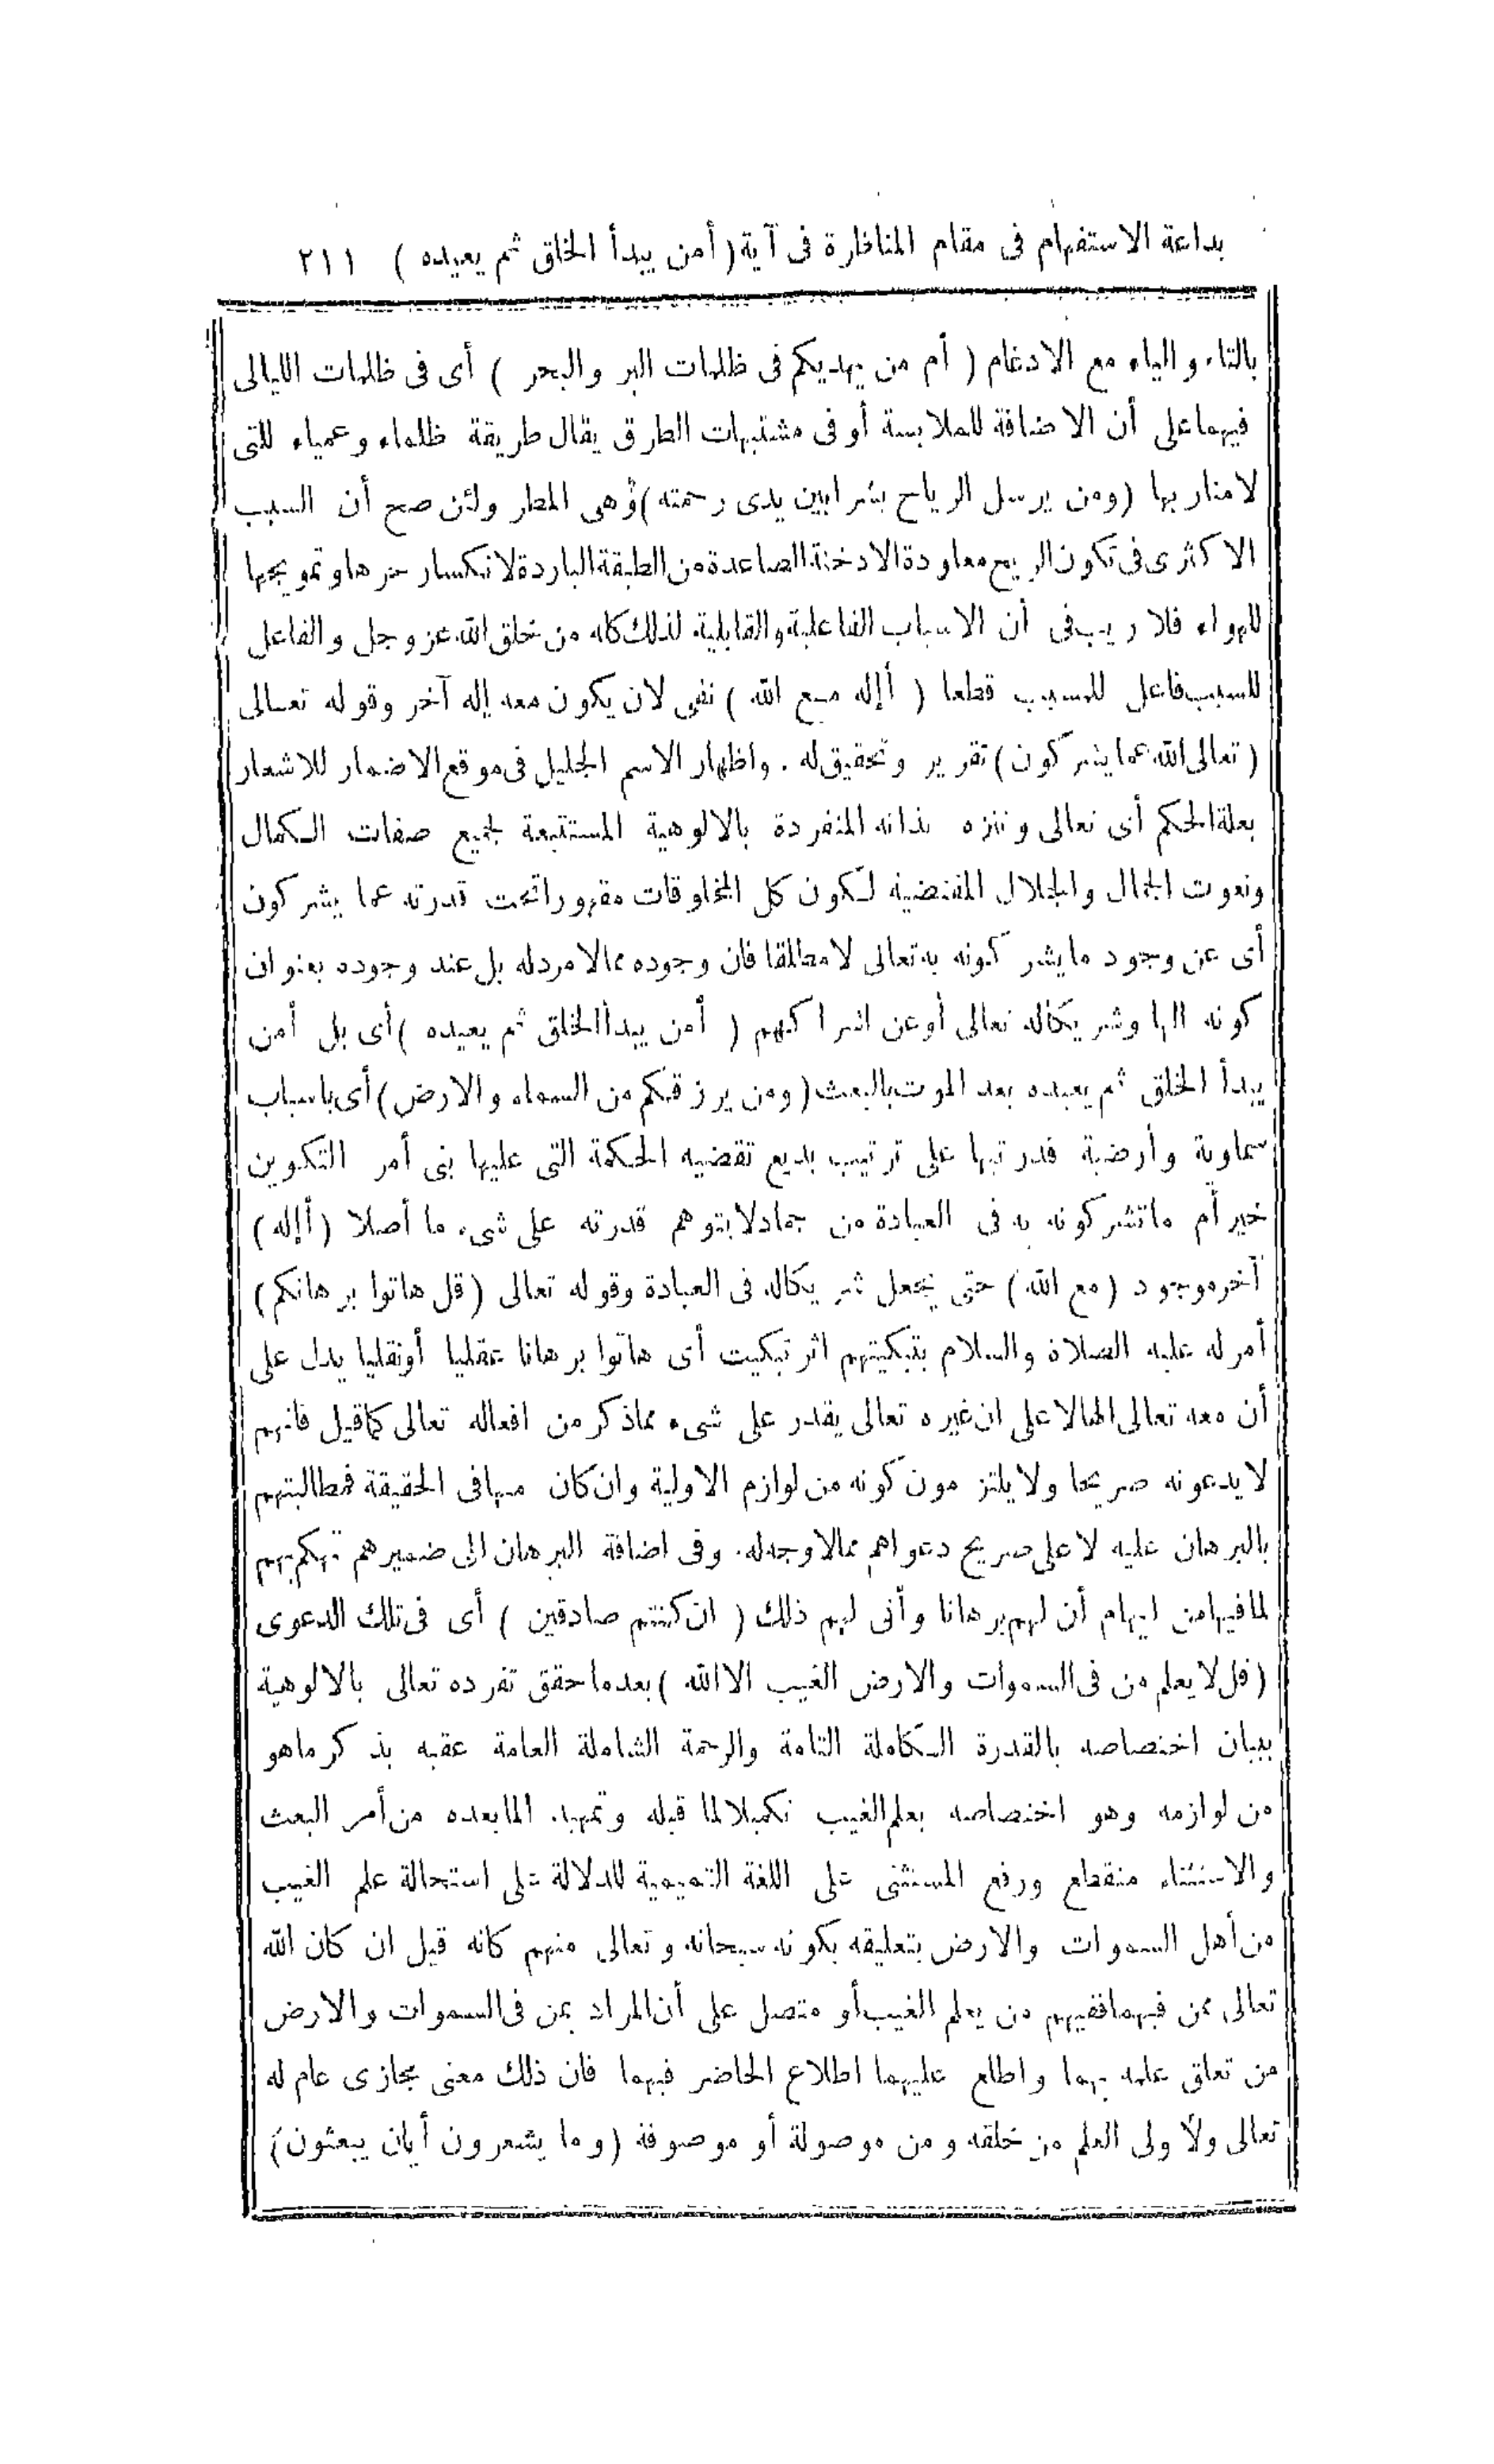 بداعة الاستفهام فى مقام المناظرة فى آية (أمن يبدأ الخلق ثم يعيده) ٢١١
بالتاء والياء مع الادغام (أم من يهديكم فى ظلمات البر والبحر) أى فى ظلمات الليالى
فيهما على أن الاضافة للملابسة أو فى مشتبهات الطرق يقال طريقة ظلماء وعمياء للتى
لا منار بها (ومن يرسل الرياح بشرا بين يدى رحمته) وهى المطر ولئن صح أن السبب
الاكثرى فى تكون الريح معاودة الادخنة الصاعدة من الطبقة الباردة لانكسار حرها وتمويجها
للهواء فلا ريب فى أن الاسباب الفاعلية والقابلية لذلك كله من خلق الله عز وجل والفاعل
للسبب فاعل للمسبب قطعا (أإله مع الله) نفى لان يكون معه إله آخر وقوله تعالى
(تعالى الله عما يشركون) تقرير وتحقيق له . واظهار الاسم الجليل فى موقع الاضمار للاشعار
بعلة الحكم أى تعالى وتنزه بذاته المنفردة بالالوهية المستتبعة لجميع صفات الكمال
ونعوت الجمال والجلال المقتضية لكون كل المخلوقات مقهورا تحت قدرته عما يشركون
أى عن وجود ما يشركونه به تعالى لا مطلقا فان وجوده مما لا مرد له بل عند وجوده بعنوان
كونه الها وشريكا له تعالى أو عن اشراكهم (أمن يبدأ الخلق ثم يعيده) أى بل أمن
يبدأ الخلق ثم يعيده بعد الموت بالبعث (ومن يرزقكم من السماء والارض) أى باسباب
سماوية وأرضية قد رتبها على ترتيب بديع تقضيه الحكمة التى عليها بنى أمر التكوين
خير أم ما تشركونه به فى العبادة من جماد لا يتوهم قدرته على شىء ما أصلا (أإله)
آخر موجود (مع الله) حتى يجعل شريكا له فى العبادة وقوله تعالى (قل هاتوا برهانكم)
أمر له عليه الصلاة والسلام بتبكيتهم اثر تبكيت أى هاتوا برهانا عقليا أو نقليا يدل على
أن معه تعالى الها لا على ان غيره تعالى يقدر على شىء مما ذكر من افعاله تعالى كما قيل فانهم
لا يدعونه صريحا ولا يلتزمون كونه من لوازم الاولية وان كان منها فى الحقيقة فمطالبتهم
بالبرهان عليه لا على صريح دعواهم مما لا وجه له. وفى اضافة البرهان الى ضميرهم تهكم بهم
لما فيها من ايهام أن لهم برهانا وأنى لهم ذلك (ان كنتم صادقين) أى فى تلك الدعوى
(قل لا يعلم من فى السموات والارض الغيب الا الله) بعد ما حقق تفرده تعالى بالالوهية
ببيان اختصاصه بالقدرة الكاملة التامة والرحمة الشاملة العامة عقبه بذكر ما هو
من لوازمه وهو اختصاصه بعلم الغيب تكميلا لما قبله وتمهيدا لما بعده من أمر البعث
والاستثناء منقطع ورفع المستثنى على اللغة التميمية للدلالة على استحالة علم الغيب
من أهل السموات والارض بتعليقه بكونه سبحانه وتعالى منهم كانه قيل ان كان الله
تعالى ممن فيهما ففيهم من يعلم الغيب أو متصل على أن المراد بمن فى السموات والارض
من تعلق علمه بهما واطلع عليهما اطلاع الحاضر فيهما فان ذلك معنى مجازى عام له
تعالى ولا ولى العلم من خلقه ومن موصولة أو موصوفة (وما يشعرون أيان يبعثون)